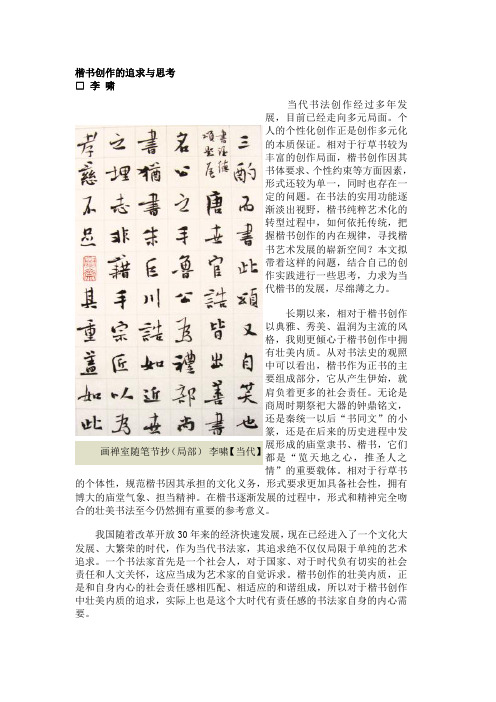 楷书创作的追求与思考
□ 李 啸
三酌而書此頌又自笑也
唐世官誥皆出善書
名公之手魯公為禮部尚
書猶書朱巨川誥如近世
之埋志非籍手宗匠以為
孝慈不足其重蓋如此
画禅室随笔节抄(局部) 李啸【当代】
当代书法创作经过多年发
展,目前已经走向多元局面。个
人的个性化创作正是创作多元化
的本质保证。相对于行草书较为
丰富的创作局面,楷书创作因其
书体要求、个性约束等方面因素,
形式还较为单一,同时也存在一
定的问题。在书法的实用功能逐
渐淡出视野,楷书纯粹艺术化的
转型过程中,如何依托传统,把
握楷书创作的内在规律,寻找楷
书艺术发展的崭新空间?本文拟
带着这样的问题,结合自己的创
作实践进行一些思考,力求为当
代楷书的发展,尽绵薄之力。
长期以来,相对于楷书创作
以典雅、秀美、温润为主流的风
格,我则更倾心于楷书创作中拥
有壮美内质。从对书法史的观照
中可以看出,楷书作为正书的主
要组成部分,它从产生伊始,就
肩负着更多的社会责任。无论是
商周时期祭祀大器的钟鼎铭文,
还是秦统一以后“书同文”的小
篆,还是在后来的历史进程中发
展形成的庙堂隶书、楷书,它们
都是“览天地之心,推圣人之
情”的重要载体。相对于行草书
的个体性,规范楷书因其承担的文化义务,形式要求更加具备社会性,拥有
博大的庙堂气象、担当精神。在楷书逐渐发展的过程中,形式和精神完全吻
合的壮美书法至今仍然拥有重要的参考意义。
我国随着改革开放 30 年来的经济快速发展,现在已经进入了一个文化大
发展、大繁荣的时代,作为当代书法家,其追求绝不仅仅局限于单纯的艺术
追求。一个书法家首先是一个社会人,对于国家、对于时代负有切实的社会
责任和人文关怀,这应当成为艺术家的自觉诉求。楷书创作的壮美内质,正
是和自身内心的社会责任感相匹配、相适应的和谐组成,所以对于楷书创作
中壮美内质的追求,实际上也是这个大时代有责任感的书法家自身的内心需
要。